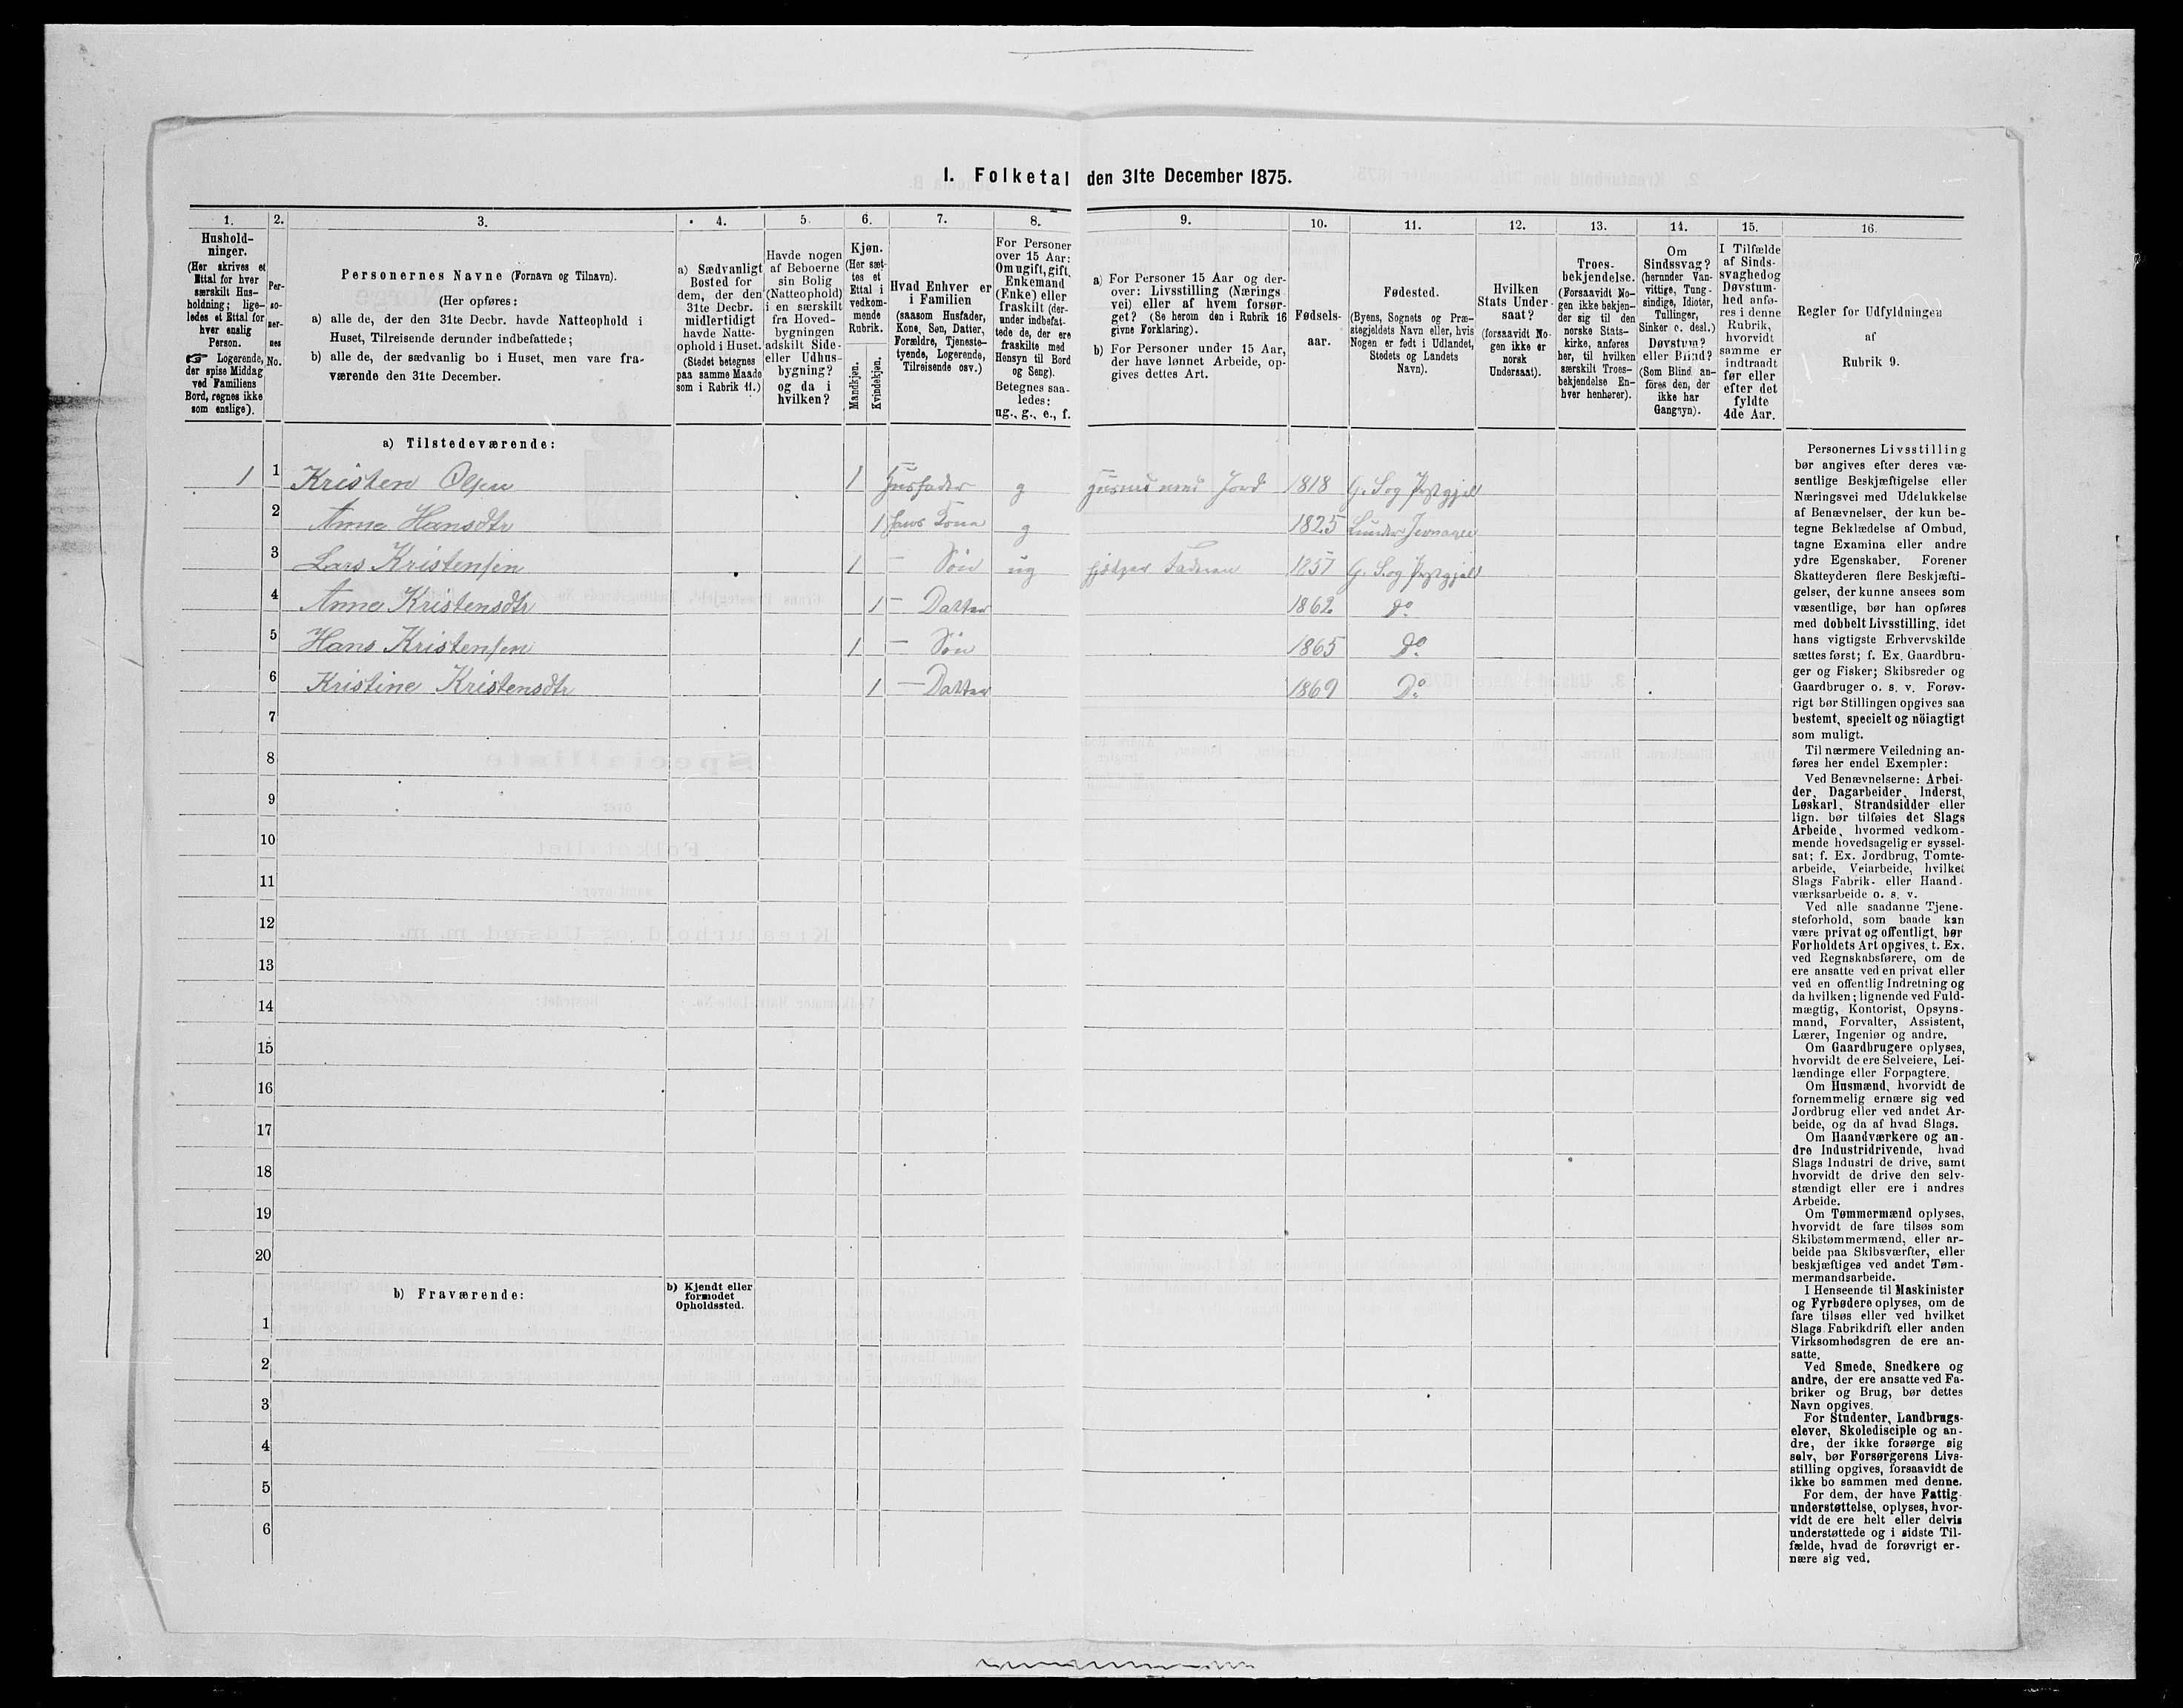 I. Folketal den 31te December 1875.
1.
Hushold-
ninger.
(Her skrives et
Ettal for hver
særskilt Hus-
holdning; lige-
ledes et Ettal for
hver enslig
Person.
☞ Logerende,
der spise Middag
ved Familiens
Bord, regnes ikke
som enslige).
2.
Per-
so-
ner-
nes
No.
3.
Personernes Navne (Fornavn og Tilnavn).
(Her opføres:
a) alle de, der den 31te Decbr. havde Natteophold i
Huset, Tilreisende derunder indbefattede;
b) alle de, der sædvanlig bo i Huset, men vare fra-
værende den 31te December.
4.
a) Sædvanligt
Bosted for
dem, der den
31te Decbr.
midlertidigt
havde Natte-
ophold i Huset.
(Stedet betegnes
paa samme Maade
som i Rubrik 11.)
5.
Havde nogen
af Beboerne
sin Bolig
(Natteophold)
i en særskilt
fra Hoved-
bygningen
adskilt Side-
eller Udhus-
bygning?
og da i
hvilken?
6.
Kjøn.
(Her sæt-
tes et
Ettal i
vedkom-
mende
Rubrik.
Mandkjøn.
Kvindekjøn.
7.
Hvad Enhver er
i Familien
(saasom Husfader,
Kone, Søn, Datter,
Forældre, Tjeneste-
tyende, Logerende,
Tilreisende osv.)
8.
For Personer
over 15 Aar:
Om ugift, gift,
Enkemand
(Enke) eller
fraskilt (der-
under indbefat-
tede de, der ere
fraskilte med
Hensyn til Bord
og Seng).
Betegnes saa-
ledes:
ug., g., e., f.
9.
a) For Personer 15 Aar og der-
over: Livsstilling (Nærings
vei) eller af hvem forsør-
get? (Se herom den i Rubrik 16
givne Forklaring).
b) For Personer under 15 Aar,
der have lønnet Arbeide, op-
gives dettes Art.
10.
Fødsels-
aar.
11.
Fødested.
(Byens, Sognets og Præ-
stegjeldets Navn eller, hvis
Nogen er født i Udlandet,
Stedets og Landets
Navn).
12.
Hvilken
Stats Under-
saat?
(forsaavidt No-
gen ikke er
norsk
Undersaat).
13.
Troes-
bekjendelse.
(Forsaavidt No-
gen ikke bekjen-
der sig til den
norske Stats-
kirke, anføres
her, til hvilken
særskilt Troes-
bekjendelse En-
hver henhører).
14.
Om
Sindssvag?
(herunder Van-
vittige, Tung-
sindige, Idioter,
Tullinger,
Sinker o. desl.)
Døvstum?
eller Blind?
(Som Blind an-
føres den, der
ikke har
Gangsyn).
15.
I Tilfælde
af Sinds-
svaghed og
Døvstum-
hed anfø-
res i denne
Rubrik,
hvorvidt
samme er
indtraadt
før eller
efter det
fyldte
4de Aar.
16.
Regler for Udfyldningen
af
Rubrik 9.
a) Tilstedeværende:
1 1 Kristen Olsen 1 Husfader g Husmand Jord 1818 G. Sog Præstgjeld
2 Anna Hansdtr 1 hans Kona g 1825 Lunder Jevnager
3 Lars Kristensen 1 — Søn ug hjelper Faderen 1857 G. S. og Præstgjeld
4 Anne Kristensdtr 1 — Datter 1862 Do
5 Hans Kristensen 1 — Søn 1865 Do
6 Kristine Kristensdtr 1 — Datter 1869 Do
7
8
9
10
11
12
13
14
15
16
17
18
19
20
b) Fraværende:
b) Kjendt eller
formodet
Opholdssted.
1
2
3
4
5
6
Personernes Livsstilling
bør angives efter deres væ-
sentlige Beskjæftigelse eller
Næringsvei med Udelukkelse
af Benævnelser, der kun be-
tegne Beklædelse af Ombud,
tagne Examina eller andre
ydre Egenskaber. Forener
Skatteyderen flere Beskjæfti-
gelser, der kunne ansees som
væsentlige, bør han opføres
med dobbelt Livsstilling, idet
hans vigtigste Erhvervskilde
sættes først; f. Ex. Gaardbru-
ger og Fisker; Skibsreder og
Gaardbruger o. s. v. Forøv-
rigt bør Stillingen opgives saa
bestemt, specielt og nöiagtigt
som muligt.
Til nærmere Veiledning an-
føres her endel Exempler:
Ved Benævnelserne: Arbei-
der, Dagarbeider, Inderst,
Løskarl, Strandsidder eller
lign. bør tilføies det Slags
Arbeide, hvormed vedkom-
mende hovedsagelig er syssel-
sat; f. Ex. Jordbrug, Tomte-
arbeide, Veiarbeide, hvilket
Slags Fabrik- eller Haand-
værksarbeide o. s. v.
Ved alle saadanne Tjene-
steforhold, som baade kan
være privat og offentligt, bør
Forholdets Art opgives, t. Ex.
ved Regnskabsførere, om de
ere ansatte ved en privat eller
ved en offentlig Indretning og
da hvilken; lignende ved Fuld-
mægtig, Kontorist, Opsyns-
mand, Forvalter, Assistent,
Lærer, Ingeniør og andre.
Om Gaardbrugere oplyses,
hvorvidt de ere Selveiere, Lei-
lændinge eller Forpagtere.
Om Husmænd, hvorvidt de
fornemmelig ernære sig ved
Jordbrug eller ved andet Ar-
beide, og da af hvad Slags.
Om Haandværkere og an-
dre Industridrivende, hvad
Slags Industri de drive, samt
hvorvidt de drive den selv-
stændigt eller ere i andres
Arbeide.
Om Tømmermænd oplyses,
hvorvidt de fare tilsøs som
Skibstømmermænd, eller ar-
beide paa Skibsværfter, eller
beskjæftiges ved andet Tøm-
mermandsarbeide.
I Henseende til Maskinister
og Fyrbødere oplyses, om de
fare tilsøs eller ved hvilket
Slags Fabrikdrift eller anden
Virksomhedsgren de ere an-
satte.
Ved Smede, Snedkere og
andre, der ere ansatte ved Fa-
briker og Brug, bør dettes
Navn opgives.
For Studenter, Landbrugs-
elever, Skoledisciple og an-
dre, der ikke forsørge sig
selv, bør Forsørgerens Livs-
stilling opgives, forsaavidt de
ikke bo sammen med denne.
For dem, der have Fattig-
understøttelse, oplyses, hvor-
vidt de ere helt eller delvis
understøttede og i sidste Til-
fælde, hvad de forøvrigt er-
nære sig ved.